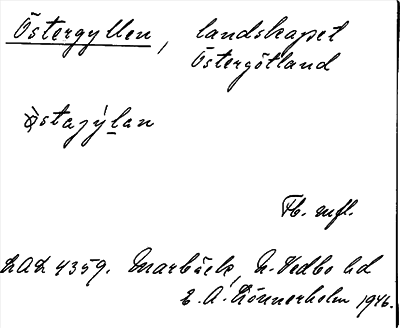 Östergyllen, landskapet
Östergötland
Östajýlan
Fb. mfl.
LAL 4359. Marbäck, N. Vedbo hd
E. A. Lönnerholm 1946.